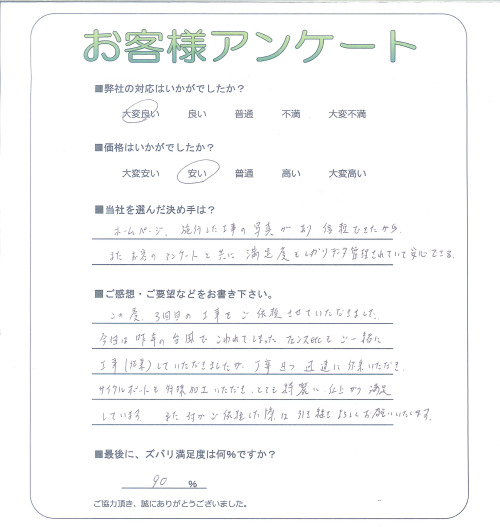 お客様アンケート
■弊社の対応はいかがでしたか？
大変良い 良い 普通 不満 大変不満
■価格はいかがでしたか？
大変安い 安い 普通 高い 大変高い
■当社を選んだ決め手は？
ホームページ、施行した工事の写真があり 信頼できたから.
また お客のアンケートと共に 満足度としっかりデータ管理されていて安心できる.
■ご感想・ご要望などをお書き下さい。
この度、3回目の工事をご依頼させていただきました.
今回は昨年の台風でこわれてしまった フェンスetcをご一緒に
工事(作業)していただきましたが、丁寧且つ迅速に作業いただき.
サイクルポートも 加工いただき、とても綺麗に仕上がり満足
しています. また何かご依頼した際は引き続きよろしくお願いいたします.
■最後に、ズバリ満足度は何％ですか？
90 ％
ご協力頂き、誠にありがとうございました。